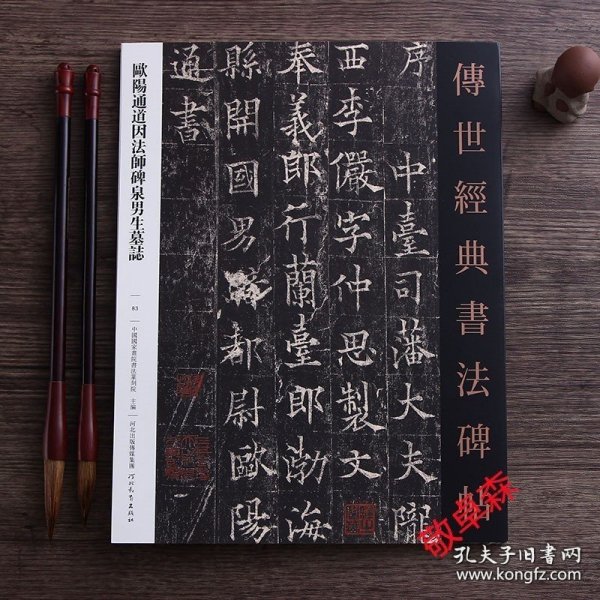 傳世經典書法碑帖
序中臺司藩大夫隴
西李儼字仲思製文
奉義郎行蘭臺郎渤海
縣開國男騎都尉歐陽
通書
歐陽通道因法師碑泉男生墓誌
83
中國國家書院書法篆刻院 主編
河北出版傳媒集團
河北教育出版社
敬典森
孔夫子旧书网
www.kongfz.com